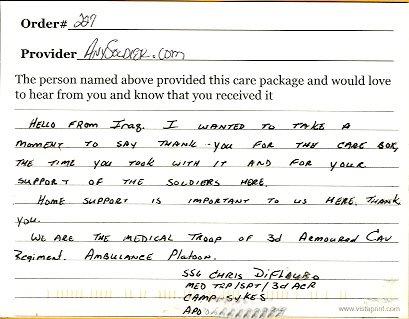 Order# 287
Provider AnySoldier.com
The person named above provided this care package and would love
to hear from you and know that you received it
Hello from Iraq. I wanted to take a
moment to say thank-you for the care box,
the time you took with it and for your
support of the soldiers here.
Home support is important to us here. Thank
you.
We are the medical troop of 3d Armoured Cav
Regiment. Ambulance Platoon.
SSG Chris
MED TRP/SPT/3d ACR
Camp Sykes
APO
www.vistaprint.com